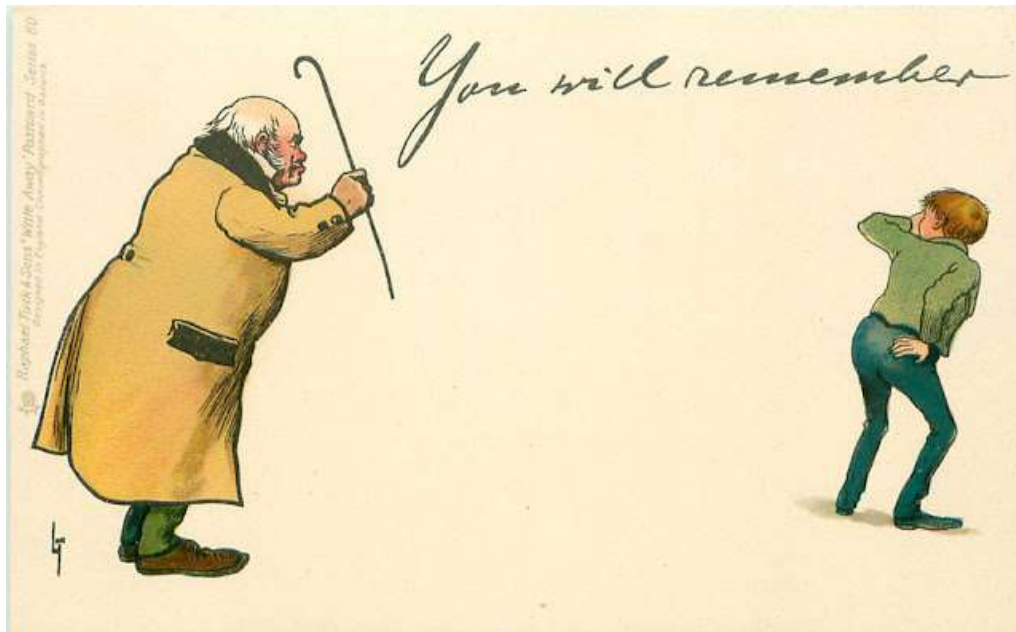 You will remember
Raphael Tuck & Sons' "Write Away" Postcard Series 60
Designed in England Chromographed in Bavaria
LT